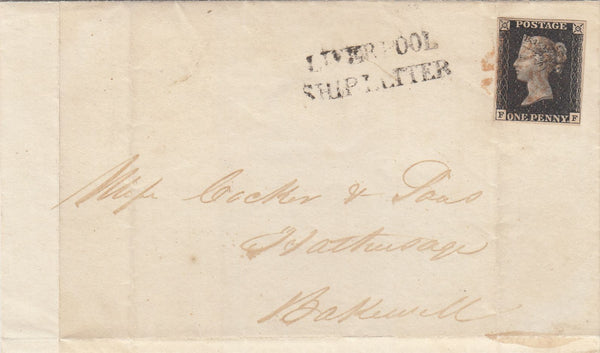 LIVERPOOL
SHIP LETTER
POSTAGE
ONE PENNY
F F
Cocker & Sons
Hathersage
Bakewell